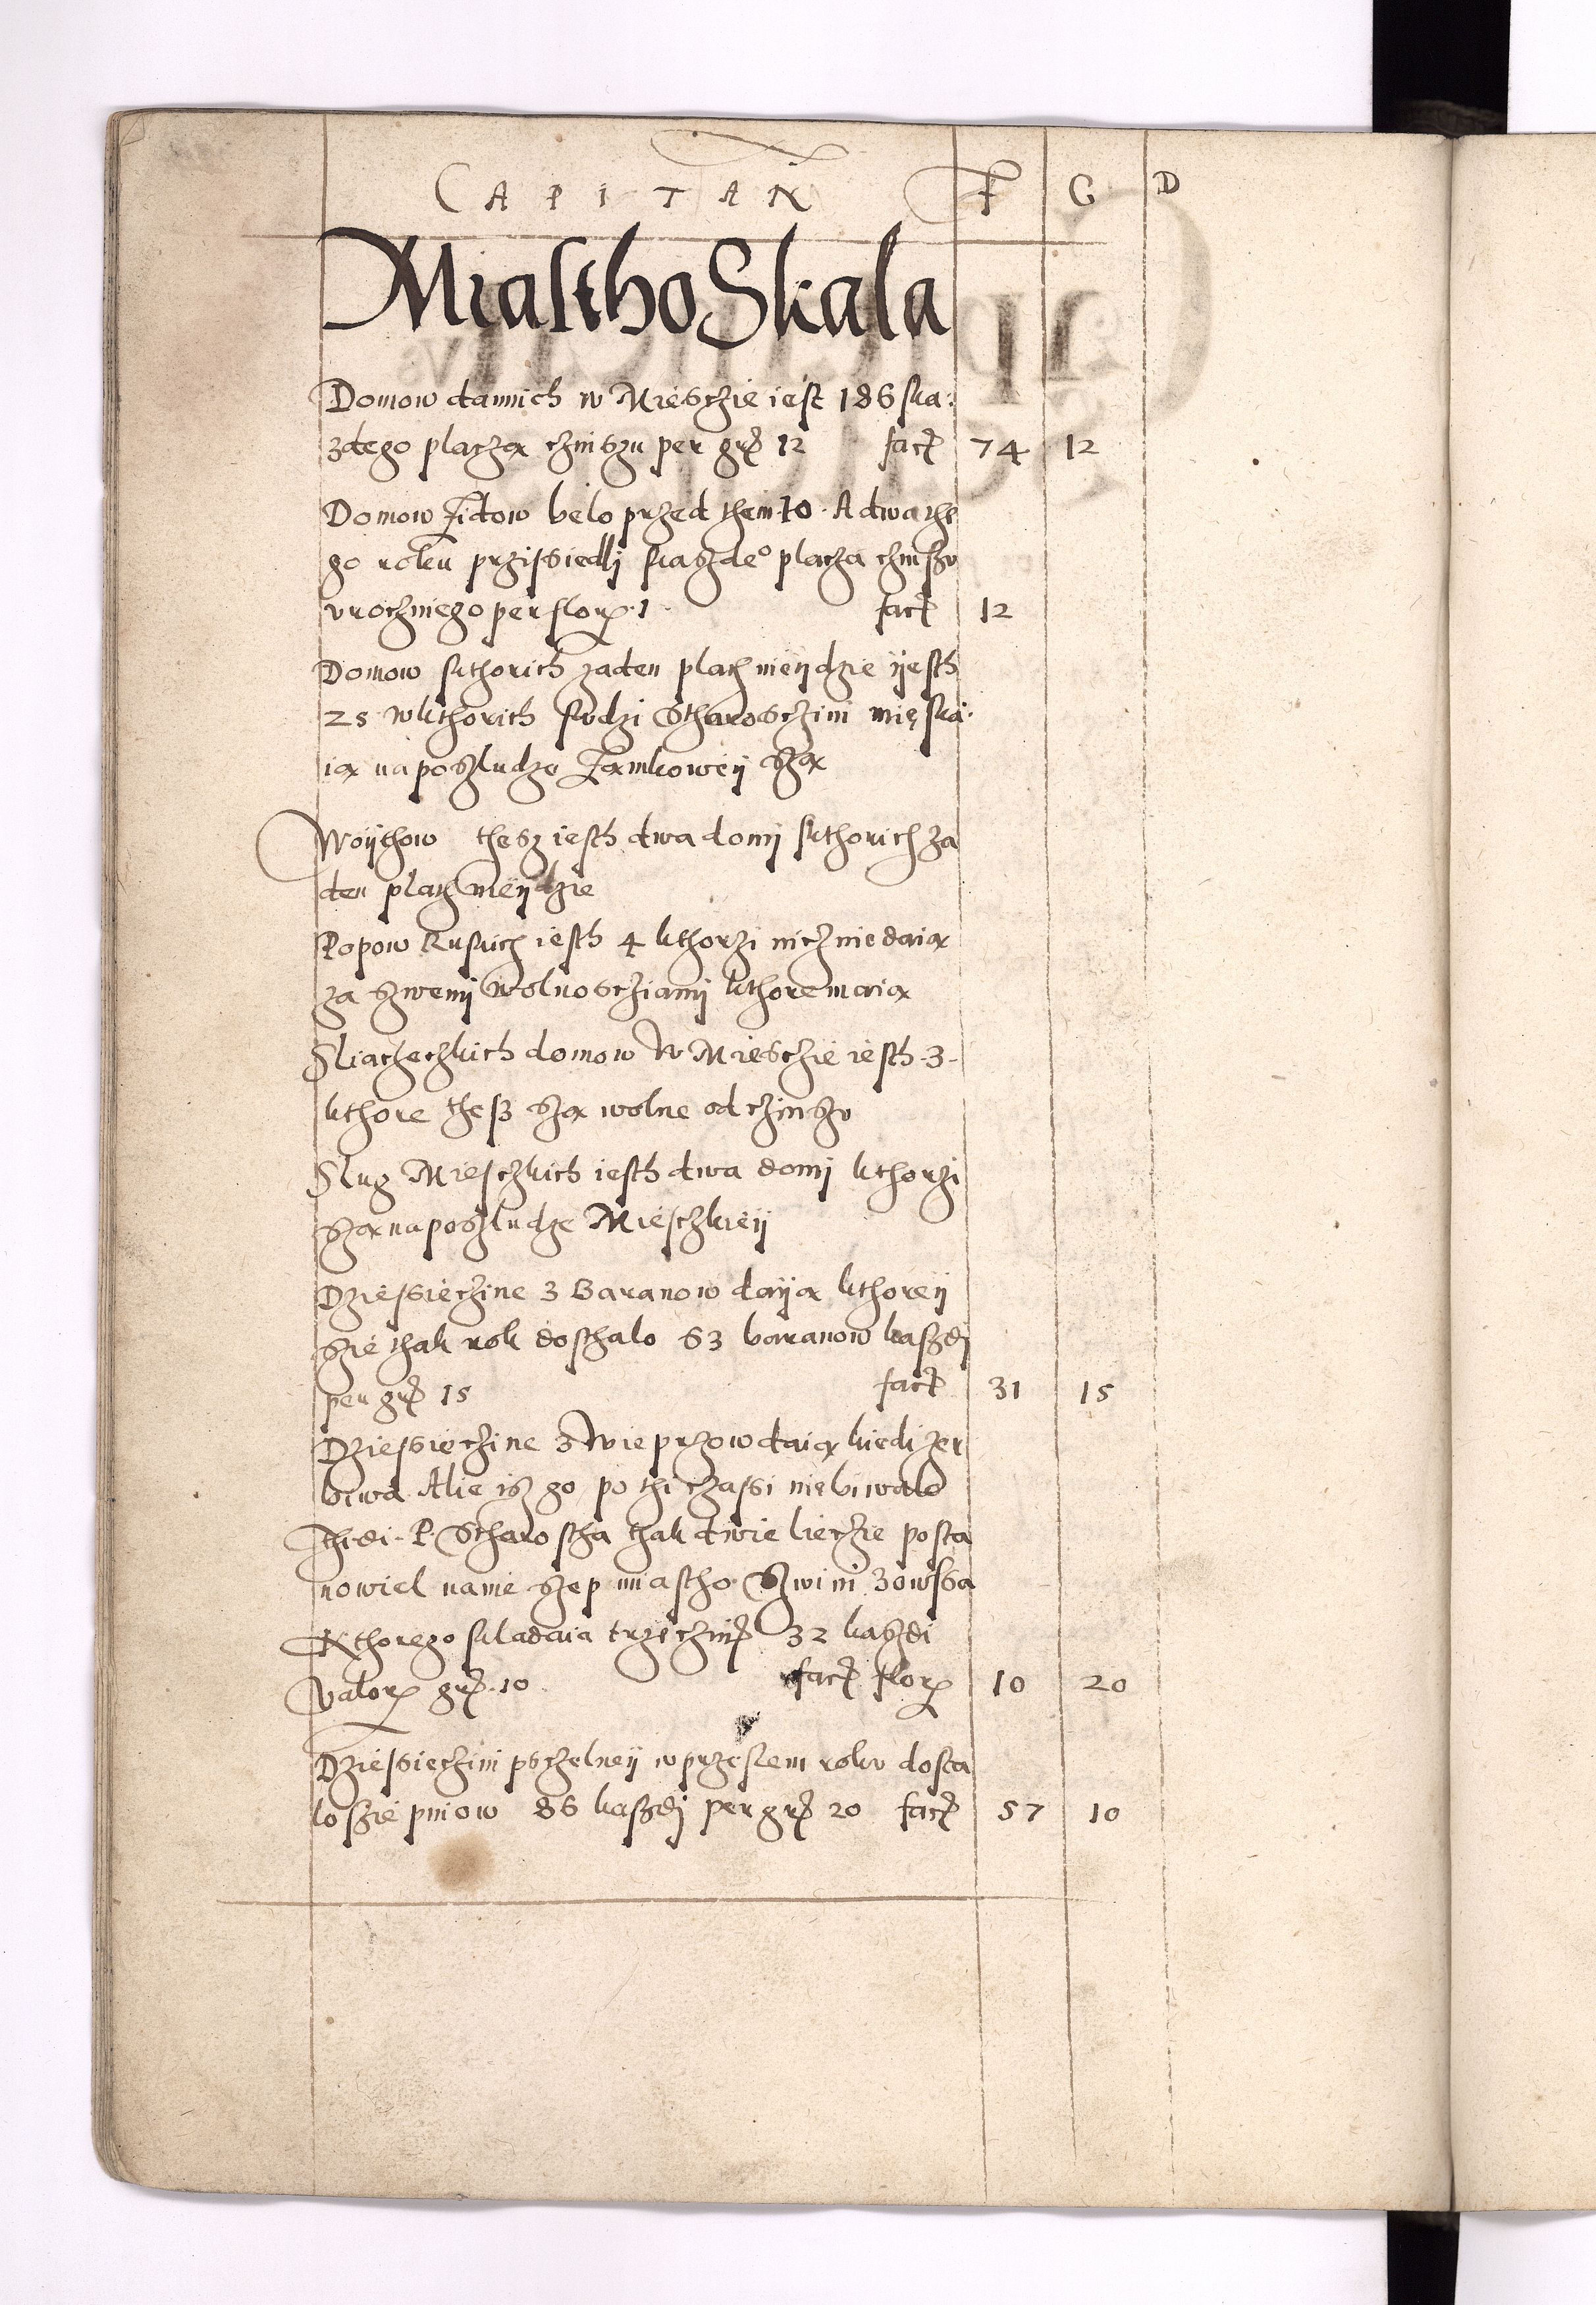 CAPITAN F G D
Miastho Skala
Domow dawnich w Miesczie iest 186 ska:
zdego placzą czinszu per grᶎ 12 facᶎ 74 12
Domow Zidow belo przed them 10. A dwa the
go roku przissiedlj skaszde° placza chinszv
vrocznego per florᶎ. 1 facᶎ 12
Domow skthorich zaden placz nieydzie yesth
25 wkthorich sludzi Stharosczini mięska
ią na poszludze Zamkoweÿ szą
Woÿthow thesz iesth dwa domÿ skthorich za
den placz nieÿdzie
Popow Ruskich iesth 4 kthorzi nicz nie daią
za szwemj wolnoscziamj kthore maią
Sliacheczkich domow w Miesczie iesth 3
kthore thesz szą wolne od czinszv
Slug Miesczkich iesth dwa domj kthorzi
szą na poszludze Miesczkieÿ
Dziessieczine z Baranow daÿą kthoreÿ
szie thak rok dosthalo 63 baranow kaszdj
per grᶎ 15 facᶎ 31 15
Dziessieczine z wieprzow daią kiedi zer
biwa Alie isz go po thi czassi nie biwalo
Thedi P Stharostha thak dwie liecze posta
nowiel na nie szep miastho szwini
Kthorego skladaia trzicziniᶎ 32 kaszdi
valorᶎ grᶎ 10 facᶎ florᶎ 10 20
Dziessieczini psczelneÿ w przeslem rokv dosta
lo szie pniow 86 kaszdj per grᶎ 20 facᶎ 57 10